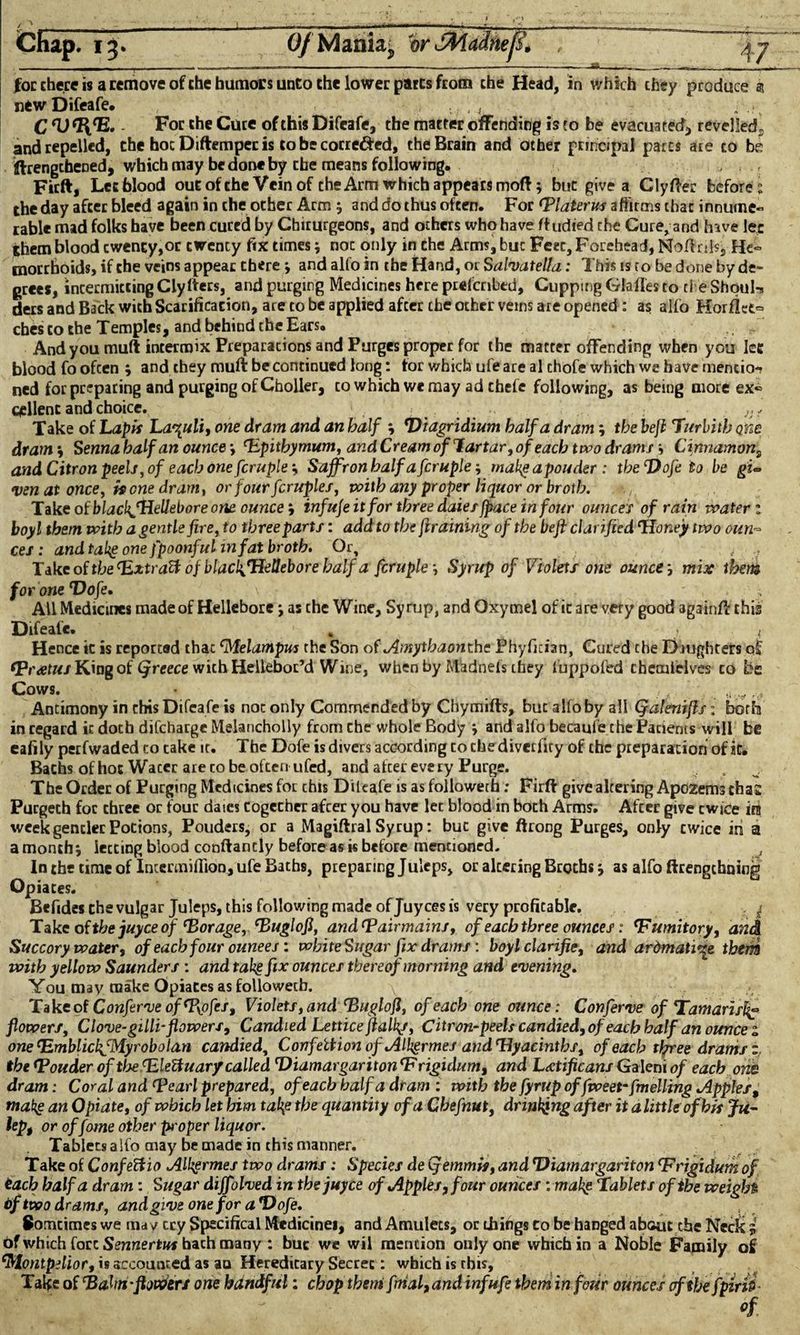 Chap. 13. Of Mania, or Madneſs. 47
for there is a remove of the humors unto the lower parts from the Head, in which they produce a
new Diſeaſe.
CURE. For the Cure of this Diſeaſe, the matter offending is to be evacuated, revelled,
and repelled, the hot Diſtemper is to be corrected, the Brain and other principal parts are to be
ſtrengthened, which may be done by the means following.
Firſt, Let blood out of the Vein of the Arm which appears moſt; but give a Glyſter before:
the day after bleed again in the other Arm; and do thus often. For Platerus affirms that innume-
rable mad folks have been cured by Chirurgeons, and others who have ſtudied the Cure, and have let
them blood twenty, or twenty ſix times; not only in the Arms, but Feet, Forehead, Noſtrils, He-
morrhoids, if the veins appear there; and alſo in the Hand, or Salvatella: This is to be done by de-
grees, intermitting Clyſters, and purging Medicines here preſcribed, Cupping Glaſſes to the Shoul-
ders and Back with Scarification, are to be applied after the other veins are opened: as alſo Horſlee-
ches to the Temples, and behind the Ears.
And you muſt intermix Preparations and Purges proper for the matter offending when you let
blood ſo often; and they muſt be continued long: for which uſe are al thoſe which we have mentio-
ned for preparing and purging of Choller, to which we may ad theſe following, as being more ex-
cellent and choice.
Take of Lapis Lazuli, one dram and an half; Diagridium half a dram; the beſt Turbith one
dram; Senna half an ounce; Epithymum, and Cream of Tartar, of each two drams; Cinnamon,
and Citron peels, of each one ſcruple; Saffron half a ſcruple; make a pouder: the Doſe to be gi-
ven at once, is one dram, or four ſcruples, with any proper liquor or broth.
Take of black Hellebore one ounce; infuſe it for three daies ſpace in four ounces of rain water:
boyl them with a gentle fire, to three parts: add to the ſtraining of the beſt clarified Honey two oun-
ces: and take one ſpoonful in fat broth. Or,
Take of the Extract of black Hellebore half a ſcruple; Syrup of Violets one ounce; mix them
for one Doſe.
All Medicines made of Hellebore; as the Wine, Syrup, and Oxymel of it are very good againſt this
Diſeaſe.
Hence it is reported that Melampus the Son of Amythaon the Phyſitian, Cured the Daughters of
Prætus King of Greece with Hellebor'd Wine, when by Madneſs they ſuppoſed themſelves to be
Cows.
Antimony in this Diſeaſe is not only Commended by Chymiſts, but alſo by all Galeniſts; both
in regard it doth diſcharge Melancholly from the whole Body; and alſo becauſe the Patients will be
eaſily perſwaded to take it. The Doſe is divers according to the diverſity of the preparation of it.
Baths of hot Water are to be often uſed, and after every Purge.
The Order of Purging Medicines for this Diſeaſe is as followeth: Firſt give altering Apozems that
Purgeth for three or four daies together after you have let blood in both Arms. After give twice in
week gentler Potions, Pouders, or a Magiſtral Syrup: but give ſtrong Purges, only twice in a
a month; letting blood conſtantly before as is before mentioned.
In the time of Intermiſſion, uſe Baths, preparing Juleps, or altering Broths; as alſo ſtrengthning
Opiates.
Beſides the vulgar Juleps, this following made of Juyces is very profitable.
Take of the juyce of Borage, Bugloſs, and Pairmains, of each three ounces: Fumitory, and
Succory water, of each four ounees: white Sugar ſix drams: boyl clarifie, and aromatize them
with yellow Saunders: and take ſix ounces thereof morning and evening.
You may make Opiates as followeth.
Take of Conſerve of Roſes, Violets, and Bugloſs, of each one ounce: Conſerve of Tamarisk-
flowers, Clove-gilli-flowers, Candied Lettice ſtalks, Citron-peels candied, of each half an ounce:
one Emblick Myrobolan candied, Confection of Alkermes and Hyacinths, of each three drams:
the Pouder of the Electuary called Diamargariton Frigidum, and Lætificans Galeni of each one
dram: Coral and Pearl prepared, of each half a dram: with the ſyrup of ſweet-ſmelling Apples,
make an Opiate, of which let him take the quantity of a Cheſnut, drinking after it a little of his Ju-
lep, or of ſome other proper liquor.
Tablets alſo may be made in this manner.
Take of Confectio Alkermes two drams: Species de Gemmis, and Diamargariton Frigidum of
each half a dram: Sugar diſſolved in the juyce of Apples, four ounces: make Tablets of the weight
of two drams, and give one for a Doſe.
Somtimes we may try Specifical Medicines, and Amulets, or things to be hanged about the Neck;
of which ſort Sennertus hath many: but we wil mention only one which in a Noble Family of
Montpelior, is accounted as an Hereditary Secret: which is this,
Take of Balm-flowers one handful: chop them ſmal, and infuſe them in four ounces of the ſpirit
of